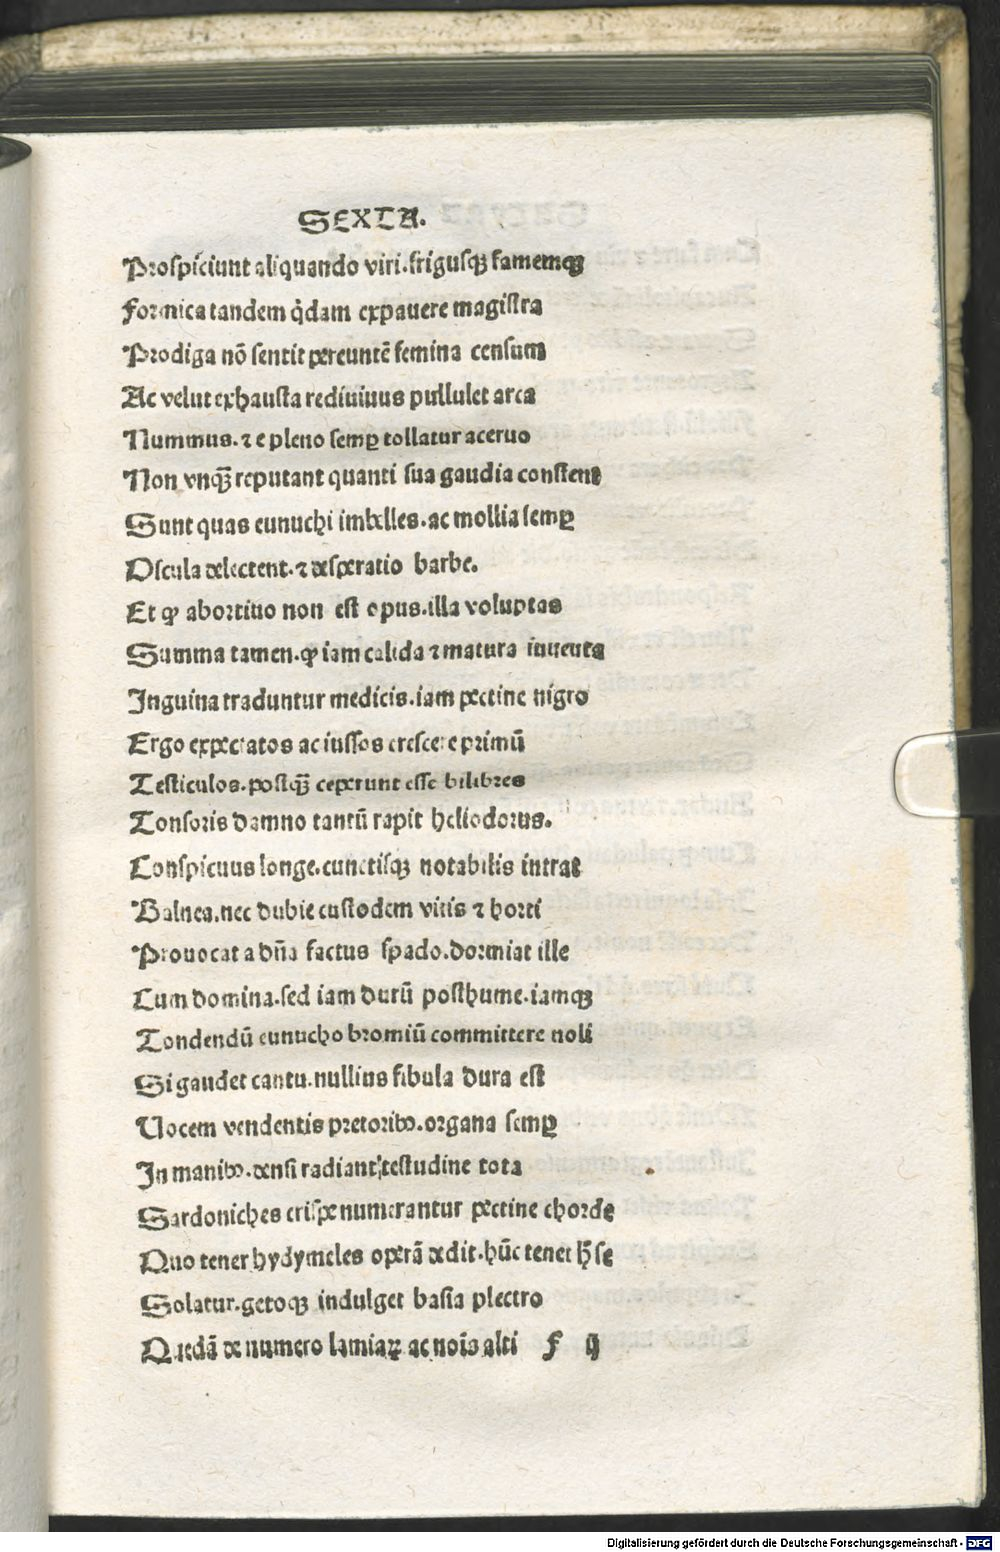 SEXTA.
Prospiciunt aliquando viri.frigusqꝫ famemqꝫ
Formica tandem q̇dam expauere magistra
Prodiga nō sentit pereuntē femina censum
Ac velut exhausta rediuiuus pullulet arca
Nummus.⁊ e pleno semꝑ tollatur aceruo
Non vnqꝫ̄ reputant quanti sua gaudia constent
Sunt quas eunuchi imbelles.ac mollia semꝑ
Oscula delectent.⁊ desperatio barbe.
Et ꝙ abortiuo non est opus.illa voluptas
Summa tamen.ꝙ iam calida ⁊ matura iuuenta
Inguina traduntur medicis.iam pectine nigro
Ergo expectatos ac iussos crescere primū
Testiculos.postqꝫ̄ ceperunt esse bilibres
Tonsoris damno tantū rapit heliodorus.
Conspicuus longe.cunctisqꝫ notabilis intrat
Balnea.nec dubie custodem vitis ⁊ horti
Prouocat a dn̄a factus spado.dormiat ille
Cum domina.sed iam durū posthume.iamqꝫ
Tondendū eunucho bromiū committere noli
Si gaudet cantu.nullius fibula dura est
Uocem vendentis pretoribꝰ.organa semꝑ
In manibꝰ.densi radiant testudine tota
Sardoniches crispe numerantur pectine chorde
Quo tener hydymeles operā dedit.hūc tenet h̄ se
Solatur.getoqꝫ indulget basia plectro
Quedā de numero lamiaꝝ ac noīs alti f ij
Digitalisierung gefördert durch die Deutsche Forschungsgemeinschaft - DFG